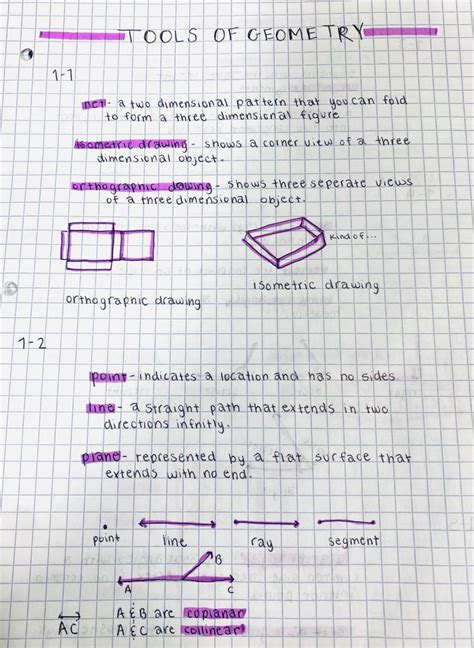 TOOLS OF GEOMETRY
1-1
net - a two dimensional pattern that you can fold
to form a three dimensional figure
isometric drawing - shows a corner view of a three
dimensional object.
orthographic dawing - shows three seperate views
of a three dimensional object.
kind of...
orthographic drawing
isometric drawing
1-2
point - indicates a location and has no sides.
line - a straight path that extends in two
directions infinitly.
plane - represented by a flat surface that
extends with no end.
point line ray segment
B
A C
AC A & B are coplanar
A & C are collinear